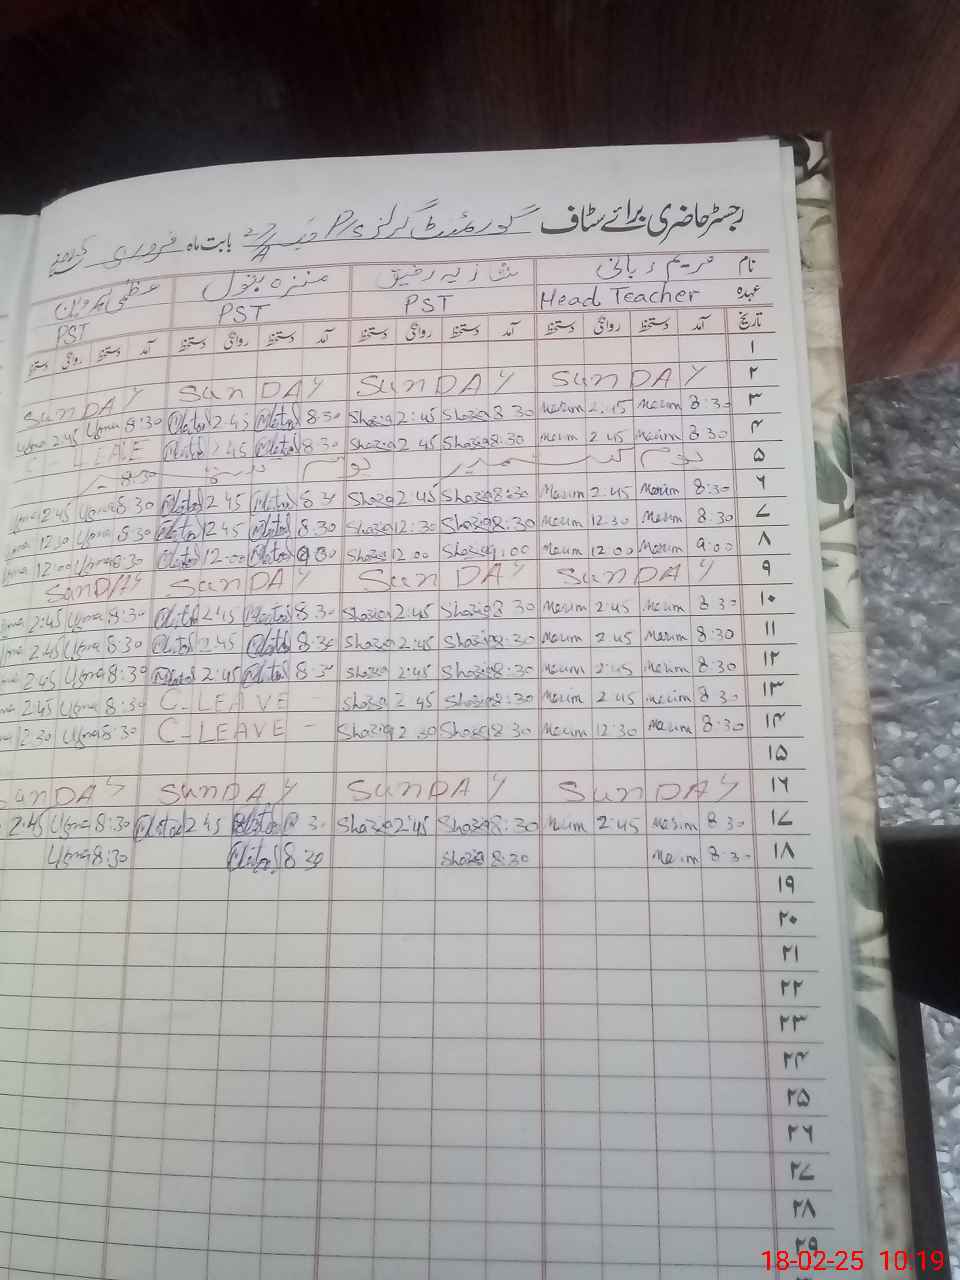 رجسٹر حاضری برائے سٹاف گورنمنٹ گرلز P/S بابت ماہ فروری
نام مریم ربانی شازیہ رفیق منزہ بتول عظمیٰ
عہدہ Head Teacher PST PST PST
تاریخ آمد دستخط روانگی دستخط آمد دستخط روانگی دستخط آمد دستخط روانگی دستخط آمد دستخط روانگی دستخط
۱
۲ SunDAY SunDAY SunDAY SunDAY
۳ 8:30 Marim 2:45 Marim 8:30 Shazia 2:45 Shazia 8:30 2:45 8:30 Uzma 2:45 Uzma
۴ 8:30 Marim 2:45 Marim 8:30 Shazia 2:45 Shazia 8:30 2:45 C-LEAVE
۵ یوم کشمیر یوم
۶ 8:30 Marim 2:45 Marim 8:30 Shazia 2:45 Shazia 8:30 2:45 8:30 Uzma 2:45 Uzma
۷ 8:30 Marim 12:30 Marim 8:30 Shazia 12:30 Shazia 8:30 12:45 8:30 Uzma 12:30 Uzma
۸ 9:00 Marim 12:00 Marim 9:00 Shazia 12:00 Shazia 9:00 12:00 8:30 Uzma 12:00 Uzma
۹ SunDAY SunDAY SunDAY SunDAY
۱۰ 8:30 Marim 2:45 Marim 8:30 Shazia 2:45 Shazia 8:30 2:45 8:30 Uzma 2:45
۱۱ 8:30 Marim 2:45 Marim 8:30 Shazia 2:45 Shazia 8:30 2:45 8:30 Uzma 2:45
۱۲ 8:30 Marim 2:45 Marim 8:30 Shazia 2:45 Shazia 8:30 2:45 8:30 Uzma 2:45
۱۳ 8:30 Marim 2:45 Marim 8:30 Shazia 2:45 Shazia C-LEAVE 8:30 Uzma 2:45
۱۴ 8:30 Marim 12:30 Marim 8:30 Shazia 2:30 Shazia C-LEAVE 8:30 Uzma 12:30
۱۵
۱۶ SunDAY SunDAY SunDAY SunDAY
۱۷ 8:30 Marim 2:45 Marim 8:30 Shazia 2:45 Shazia 8:30 2:45 8:30 Uzma 2:45
۱۸ 8:30 Marim 8:30 Shazia 8:30 8:30 Uzma
۱۹
۲۰
۲۱
۲۲
۲۳
۲۴
۲۵
۲۶
۲۷
۲۸
۲۹
18-02-25 10:19